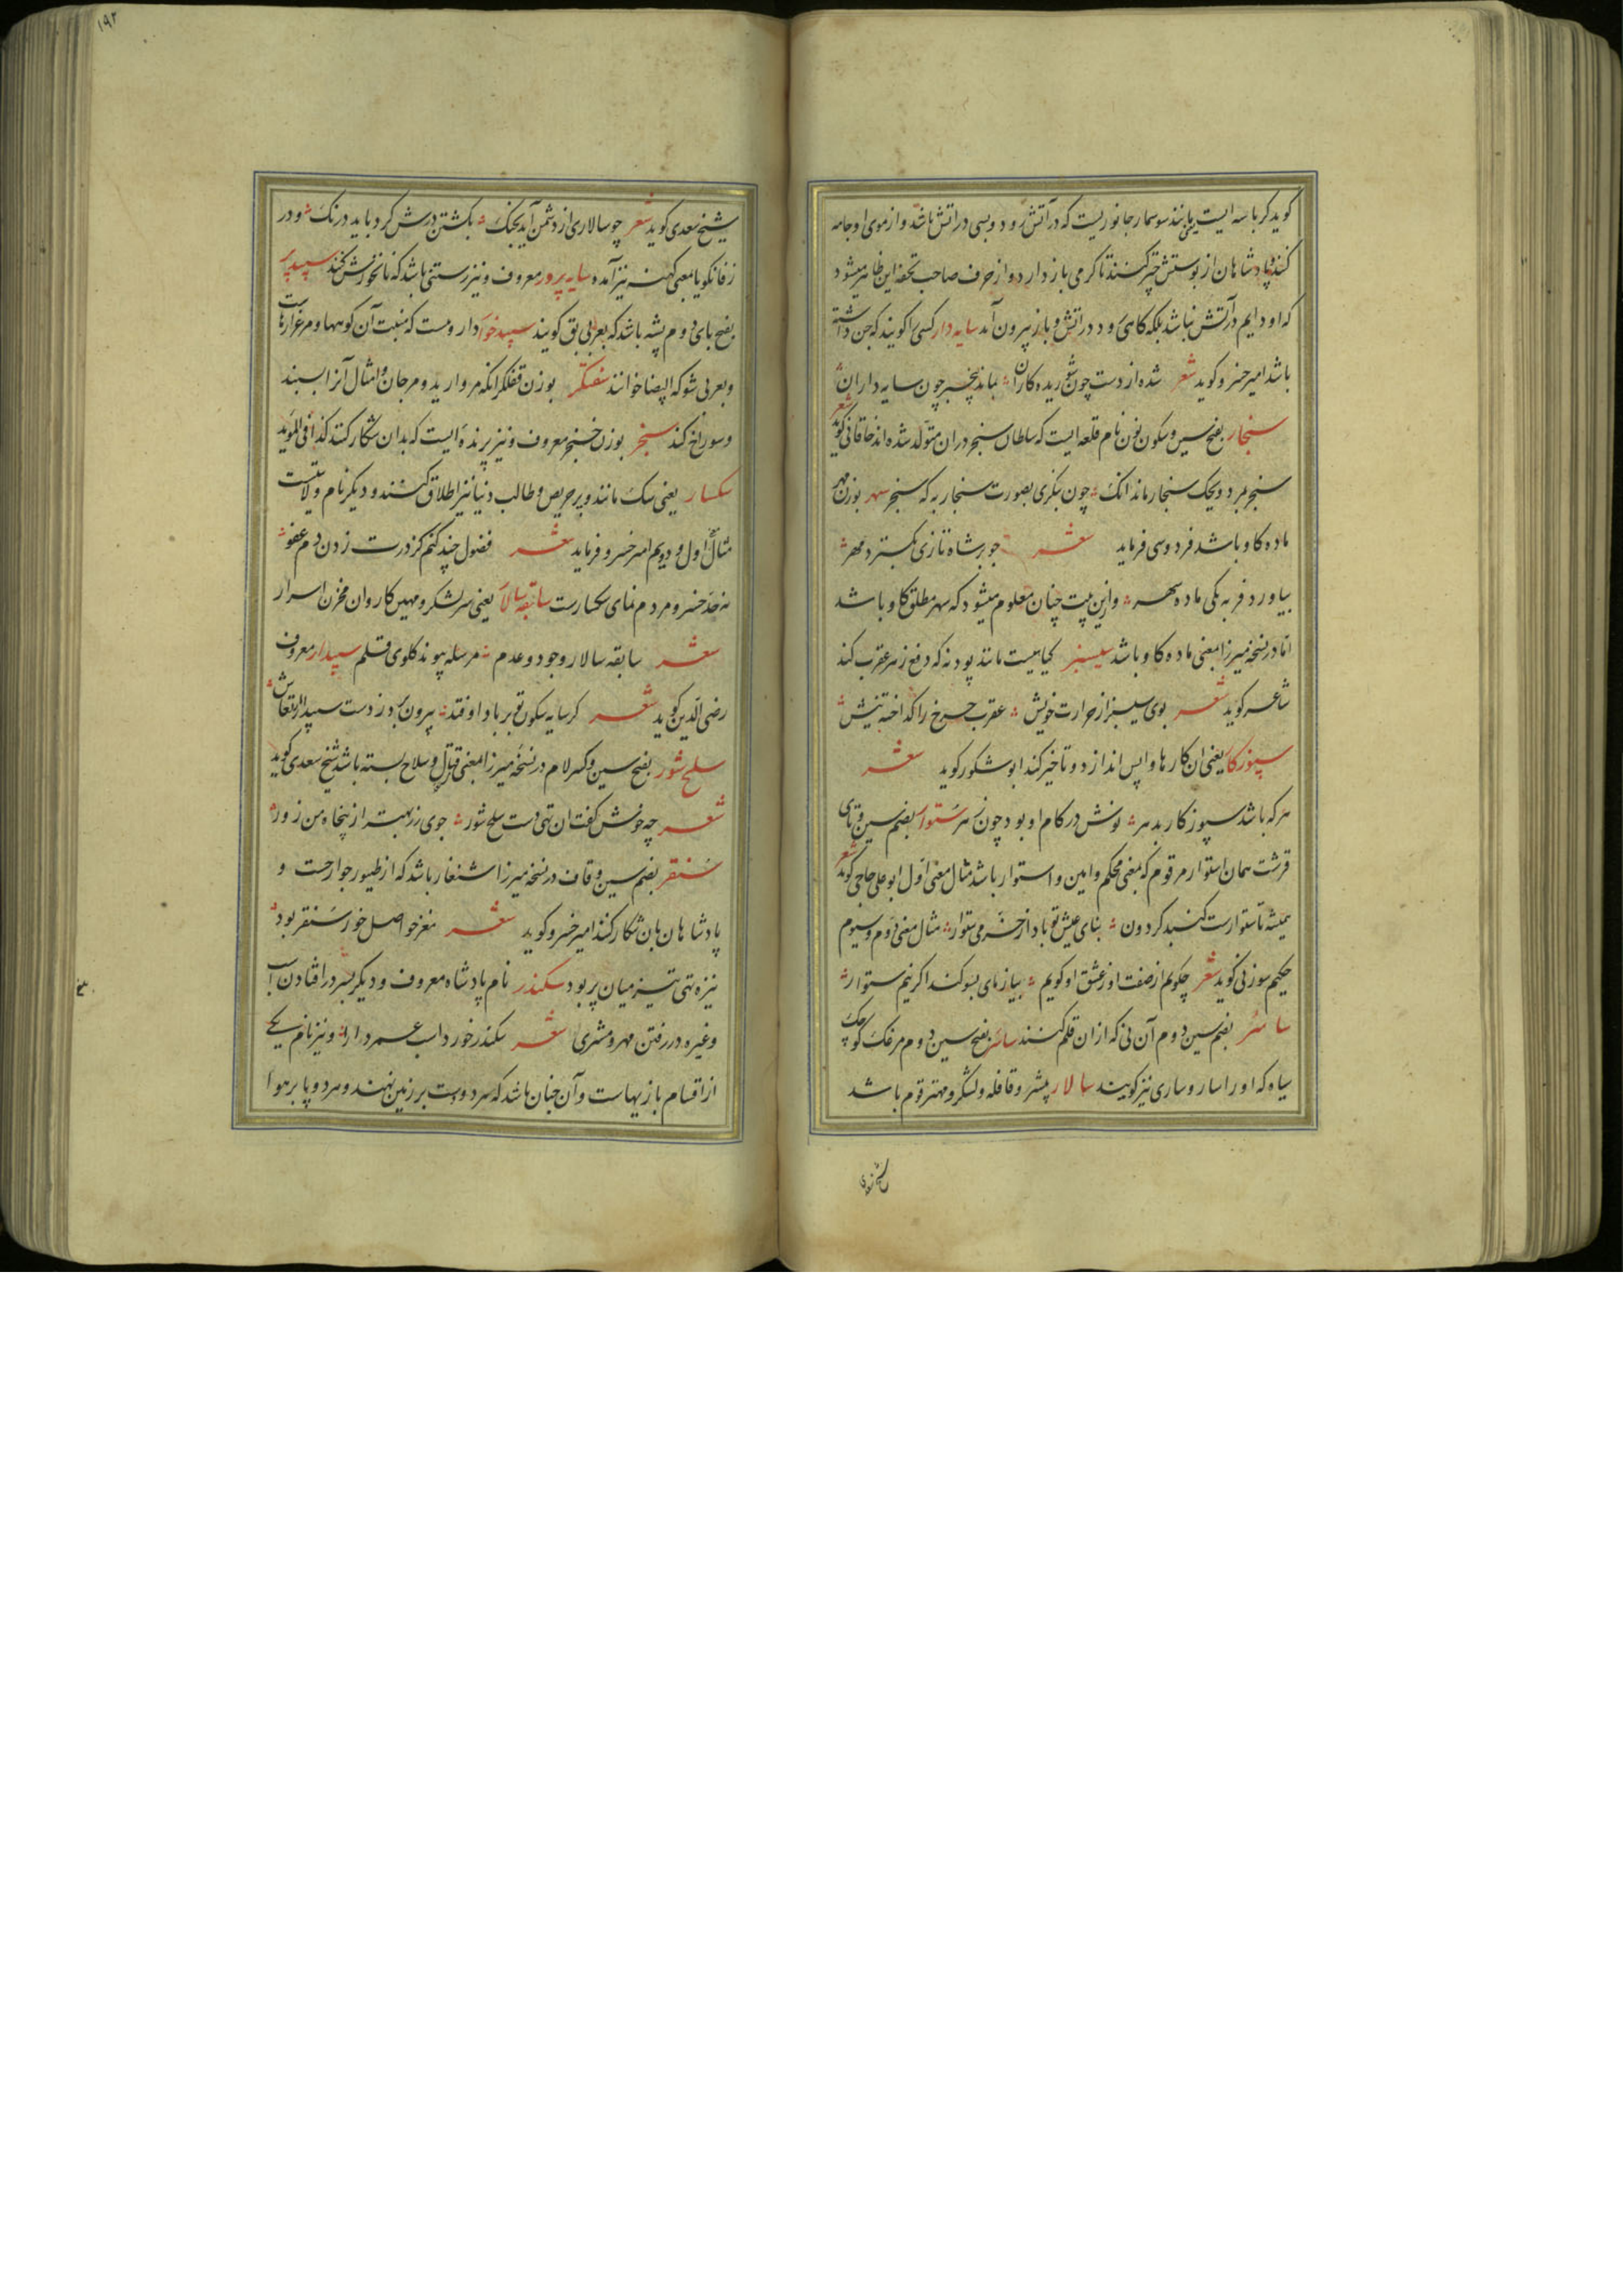 کوید کرباسه ایست یعنی مانند سوسمار جانوریست که در آتش رود و بسی در اتش باشد و از موی او جامه
کنند و پادشاهان از پوستش چتر کنند تا کرمی باز دارد و از حرف صاحب تحفه این ظاهر میشود
که او دایم در آتش نباشد بلکه کاهی رود در اتش و باز بیرون آمد سایه دار کسی را کویند که جن داشته
باشد امیر خسرو کوید شعر شده از دست چون شوریده کاران بمانده بیخبر چون سایه داران
سنجار بفتح سین و سکون نون نام قلعه ایست که سلطان سنجر در ان متولد شده اند خاقانی کوید شعر
سنجر بمرد و یحک سنجار ماند انک چون بنکری بصورت سنجار به که سنجر سهر بوزن مهر
ماده کاو باشد فردوسی فرماید شعر چو برشاه تازی بکسترد مهر
بیاورد فربه یکی ماده سهر و ازین بیت چنان معلوم میشود که سهر مطلق کاو باشد
اما در نسخه میرزا بمعنی ماده کاو باشد سیسنبر کیاهیست مانند پودنه که دفع زهر عقرب کند
شاعر کوید شعر بوی سیسنبر از حرارت خویش عقرب چرخ را کداخته نیش
سپوزکار یعنی ان کارها واپس اندازد و تاخیر کند ابو شکور کوید شعر
هر که باشد سپوزکار بدهر نوش در کام او بود چون زهر ستوار بضم سین و تای
قرشت همان استوار مرقوم که بمعنی محکم و امین و استوار باشد مثال معنی اول ابو علی حاجی کوید شعر
همیشه تا ستوارست کنبد کردون بنای عیش تو باد از خرمی ستوار مثال معنی دوم و سیوم
حکیم سوزنی کوید شعر چکویم از صفت او ز عشق او کویم بیازمای بسوکند اکر نیم ستوار
ساسر بضم سین دوم آن نی که از ان قلم کنند ساسر بفتح سین دوم مرغک کوچک
سیاه که او را سار و ساری نیز کویند سالار پیشرو قافله و لشکر و مهتر قوم باشد
شیخ سعدی
۱۹۲
شیخ سعدی کوید شعر چو سالاری از دشمن آید بچنک بکشتن درش کرد باید درنک و در
زفانکویا بمعنی کهنه نیز آمده سایه پرور معروف و نیز رستنی باشد که نانخورش کنند سپید پر
بفتح بای دوم پشه باشد که بعربی بق کویند سپید خوار دارویست که منبت آن کوهها و مرغزارهاست
و بعربی شوکه البیضا خوانند سفتکر بوزن قفلکر انکه مروارید و مرجان و امثال آنرا بسنبد
و سوراخ کند سنجر بوزن خنجر معروف و نیز پرنده ایست که بدان شکار کنند کذا فی الموید
سکسار یعنی سک مانند و بر حریص و طالب دنیا نیز اطلاق کنند و دیکر نام ولایتیست
مثال اول و دویم امیر خسرو فرماید شعر فضول چند کنم کز درت زدن دم عفو
نه حد خسرو مردم نمای سکسارست سابقه سالار یعنی سر لشکر و مهین کاروان مخزن اسرار
شعر سابقه سالار وجود و عدم مرسله پیوند کلوی قلم سپیدار معروف
رضی الدین کوید شعر کر سایه سکون تو بر باد اوفتد بیرون برد ز دست سپیدار ارتعاش
سلح شور بفتح سین و کسر لام در نسخه میرزا بمعنی قتال و سلاح بسته باشد شیخ سعدی کوید
شعر چه خوش کفت ان تهی دست سلح شور جوی زر بهتر از پنجاه من زور
سنقر بضم سین و قاف در نسخه میرزا شنغار باشد که از طیور جوارحست و
پادشاهان بان شکار کنند امیر خسرو کوید شعر مغز حواصل خور سنقر بود
نیزه تهی تیز میان پر بود سکندر نام پادشاه معروف و دیکر بسر در افتادن اسب
و غیره در رفتن مهر و مشتری شعر سکندر خورد اسب عمر دارا و نیز نام یکی
از اقسام بازیهاست و آن چنان باشد که سر و دست بر زمین نهند و هر دو پا بر هوا